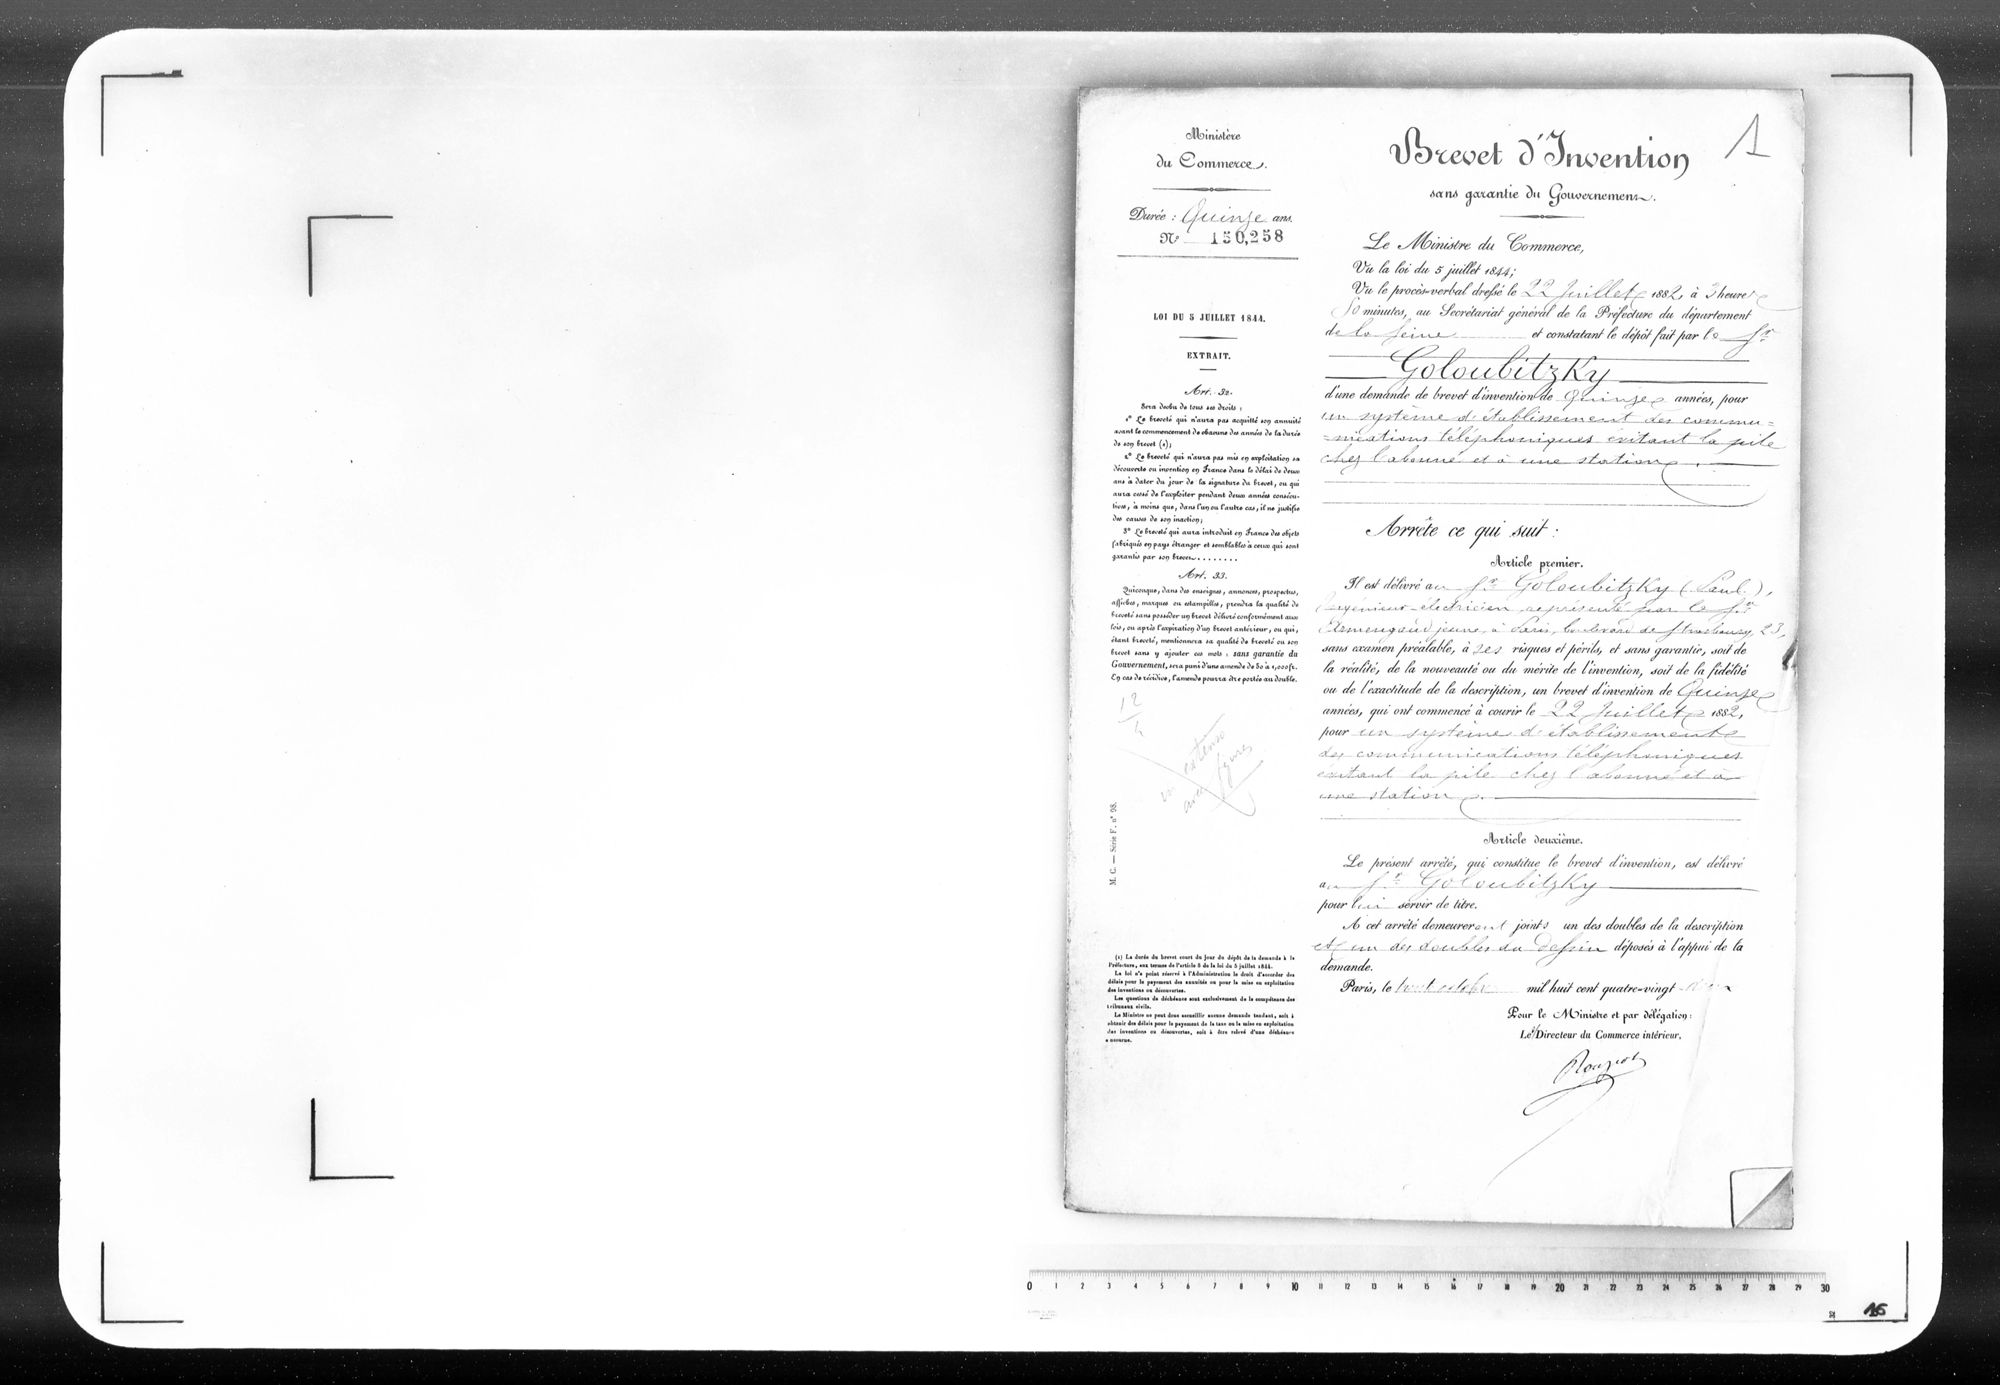 Ministère
du Commerce.
Durée : Quinze ans.
N° 150,258
LOI DU 5 JUILLET 1844.
EXTRAIT.
Art. 32.
Sera déchu de tous ses droits :
1° Le breveté qui n'aura pas acquitté son annuité
avant le commencement de chacune des années de la durée
de son brevet (1);
2° Le breveté qui n'aura pas mis en exploitation sa
découverte ou invention en France dans le délai de deux
ans à dater du jour de la signature du brevet, ou qui
aura cessé de l'exploiter pendant deux années consécu-
tives, à moins que, dans l'un ou l'autre cas, il ne justifie
des causes de son inaction;
3° Le breveté qui aura introduit en France des objets
fabriqués en pays étranger et semblables à ceux qui sont
garantis par son brevet........
Art. 33.
Quiconque, dans des enseignes, annonces, prospectus,
affiches, marques ou estampilles, prendra la qualité de
breveté sans posséder un brevet délivré conformément aux
lois, ou après l'expiration d'un brevet antérieur, ou qui,
étant breveté, mentionnera sa qualité de breveté ou son
brevet sans y ajouter ces mots : sans garantie du
Gouvernement, sera puni d'une amende de 50 à 1,000 fr.
En cas de récidive, l'amende pourra être portée au double.
12
4
in extenso
avec figures
M. C. — Série F. n° 98.
(1) La durée du brevet court du jour du dépôt de la demande à la
Préfecture, aux termes de l'article 8 de la loi du 5 juillet 1844.
La loi n'a point réservé à l'Administration le droit d'accorder des
délais pour le payement des annuités ou pour la mise en exploitation
des inventions ou découvertes.
Les questions de déchéance sont exclusivement de la compétence des
tribunaux civils.
Le Ministre ne peut donc accueillir aucune demande tendant, soit à
obtenir des délais pour le payement de la taxe ou la mise en exploitation
des inventions ou découvertes, soit à être relevé d'une déchéance
encourue.
Brevet d'Invention
1
sans garantie du Gouvernement.
Le Ministre du Commerce,
Vu la loi du 5 juillet 1844;
Vu le procès-verbal dressé le 22 Juillet 1882, à 3 heures
50 minutes, au Secrétariat général de la Préfecture du département
de la Seine et constatant le dépôt fait par le Sr
Goloubitzky
d'une demande de brevet d'invention de Quinze années, pour
un système d'établissement des commu=
=nications téléphoniques évitant la pile
chez l'abonné et à une station.
Arrête ce qui suit :
Article premier.
Il est délivré au Sr Goloubitzky (Paul),
Ingénieur-électricien, représenté par le Sr
Armengaud jeune, à Paris, boulevard de Strasbourg, 23,
sans examen préalable, à ses risques et périls, et sans garantie, soit de
la réalité, de la nouveauté ou du mérite de l'invention, soit de la fidélité
ou de l'exactitude de la description, un brevet d'invention de Quinze
années, qui ont commencé à courir le 22 Juillet 1882,
pour un système d'établissement
des communications téléphoniques
évitant la pile chez l'abonné et à
une station.
Article deuxième.
Le présent arrêté, qui constitue le brevet d'invention, est délivré
au Sr Goloubitzky
pour lui servir de titre.
A cet arrêté demeureront joints un des doubles de la description
et un des doubles du dessin déposés à l'appui de la
demande.
Paris, le huit octobre mil huit cent quatre-vingt
Pour le Ministre et par délégation :
Le Directeur du Commerce intérieur,
0 1 2 3 4 5 6 7 8 9 10 11 12 13 14 15 16 17 18 19 20 21 22 23 24 25 26 27 28 29 30
16